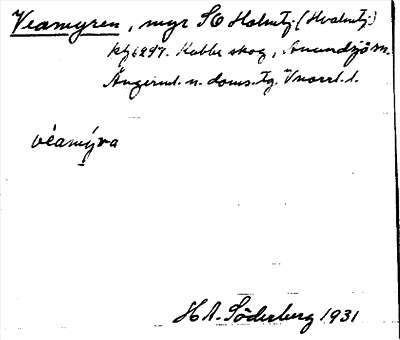 Veamyren, myr SO Holmtj (Hvalmtj.)
kfs297. Kubbe skog, Anundsjö sn.
Ångerml. n. doms. tg. Vnorrl. l.
véamýra
H A. Söderberg 1931